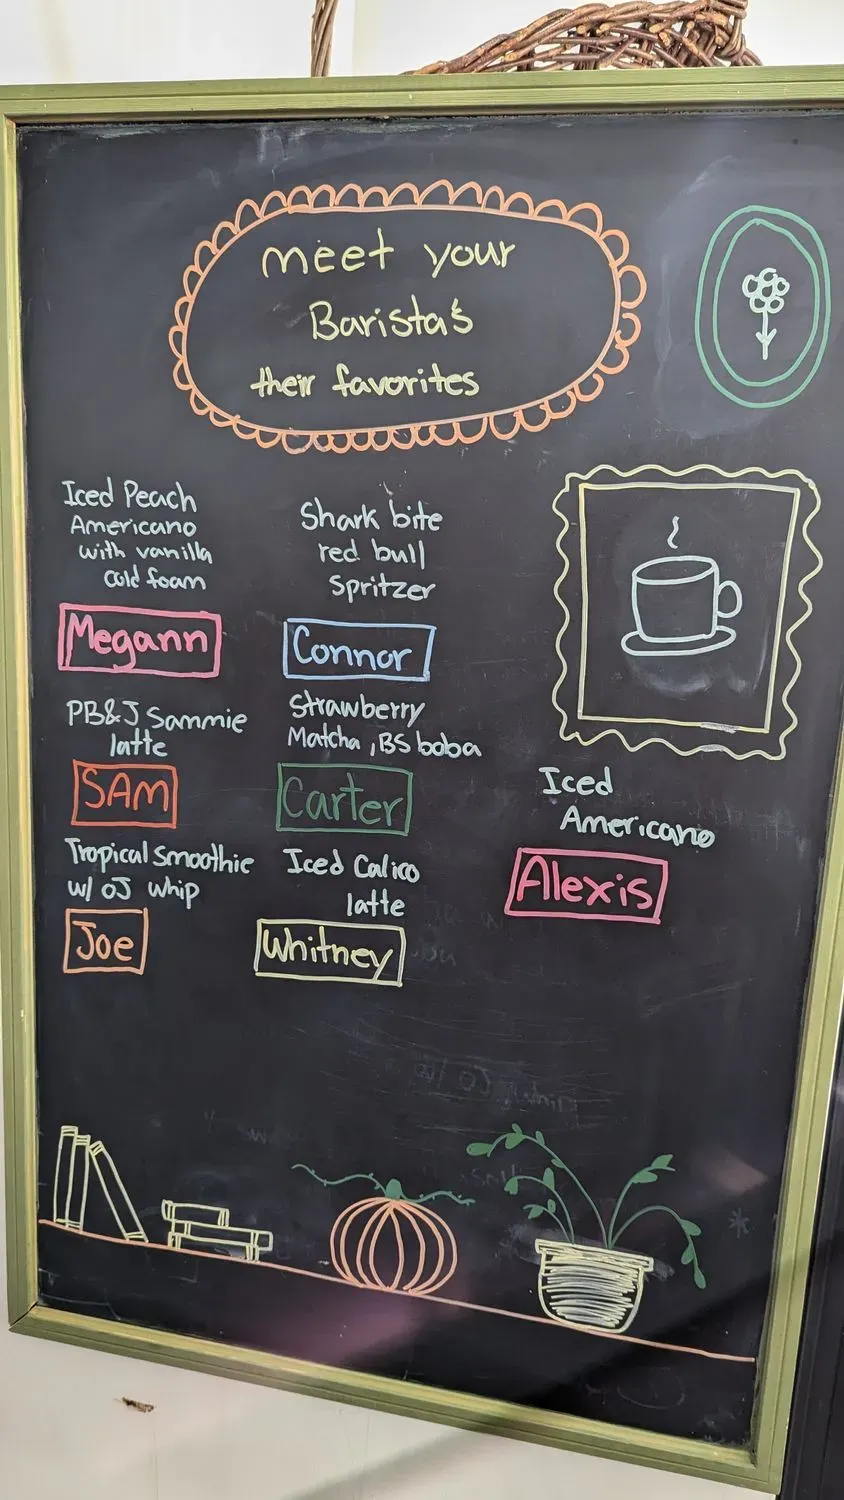 meet your
Barista's
their favorites
Iced Peach
Americano
with vanilla
cold foam
Megann
Shark bite
red bull
spritzer
Connor
PB&J Sammie
latte
SAM
Strawberry
Matcha, BS boba
Carter
Iced
Americano
Alexis
Tropical Smoothie
w/ OJ whip
Joe
Iced Calico
latte
Whitney